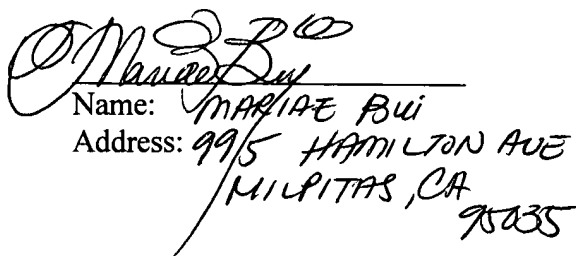 Mariae Bui
Name: MARIAE BUI
Address: 995 HAMILTON AVE
MILPITAS, CA
95035